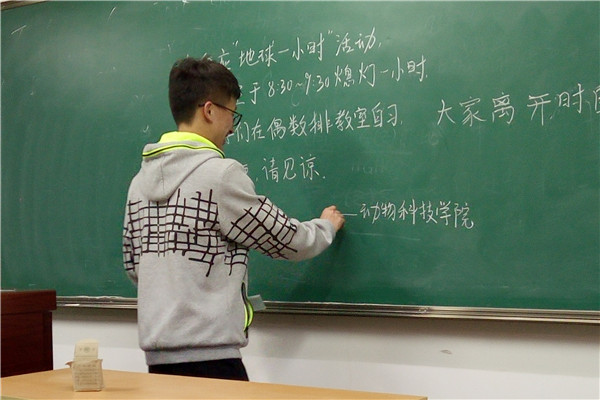 应"地球一小时"活动,
于8:30~9:30熄灯一小时.
们在偶数排教室自习. 大家离开时
请见谅.
—动物科技学院